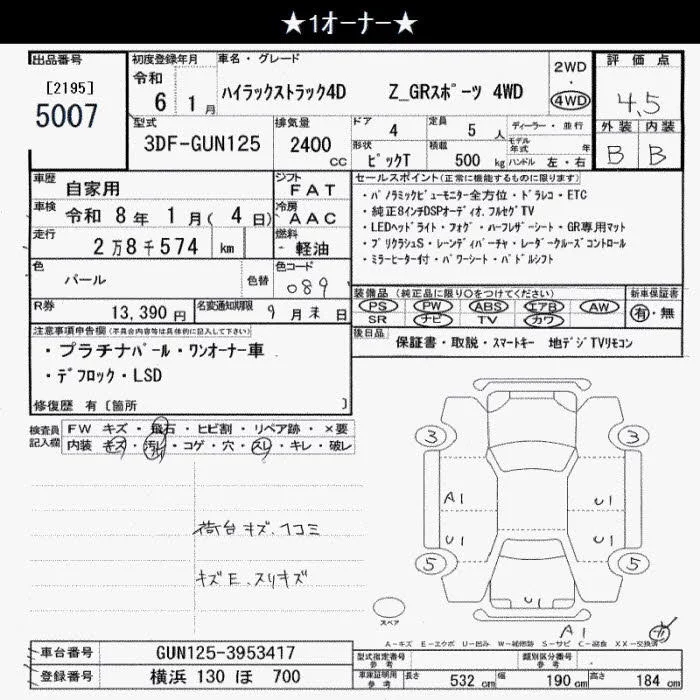 ★1オーナー★
出品番号
[2195]
5007
初度登録年月
令和
6 1月
車名・グレード
ハイラックストラック4D Z_GRスポーツ 4WD
2WD
・
4WD
評価点
4.5
外装 内装
B B
型式
3DF-GUN125
排気量
2400
cc
ドア 4
定員 5 人
ディーラー・並行
形状 ピックT
積載 500 kg
モデル年式 年
ハンドル 左・右
車歴 自家用
シフト FAT
車検 令和 8年 1月( 4日)
冷房 AAC
走行 2万8千574 km
燃料 軽油
色 パール
色替
色コード 089
R券 13,390円
名変通知期限 9月末日
セールスポイント(正常に機能するものに限ります)
・パノラミックビューモニター全方位・ドラレコ・ETC
・純正8インチDSPオーディオ.フルセグTV
・LEDヘッドライト・フォグ・ハーフレザーシート・GR専用マット
・プリクラシュS・レーンディパーチャ・レーダークルーズコントロール
・ミラーヒーター付・パワーシート・パドルシフト
装備品(純正品に限り○をつけてください)
PS PW ABS エアB AW
SR ナビ TV カワ
新車保証書
有・無
後日品
保証書・取説・スマートキー 地デジTVリモコン
注意事項申告欄(不具合内容等は具体的に記入して下さい)
・プラチナパール・ワンオーナー車
・デフロック・LSD
修復歴 有〔箇所 〕
検査員記入欄
FW キズ・飛石・ヒビ割・リペア跡・×要
内装 キズ・汚れ・コゲ・穴・スレ・キレ・破レ
荷台キズ、凹コミ
キズE、スリキズ
3 3
A1 U1
U1 U1
5 5
U1
A1
スペア
A-キズ E-エクボ U-凹み W-補修跡 S-サビ C-腐食 XX-交換済
車台番号 GUN125-3953417
登録番号 横浜 130 ほ 700
型式指定番号
参考
類別区分番号
参考
車庫証明用
参考
長さ 532 cm
幅 190 cm
高さ 184 cm